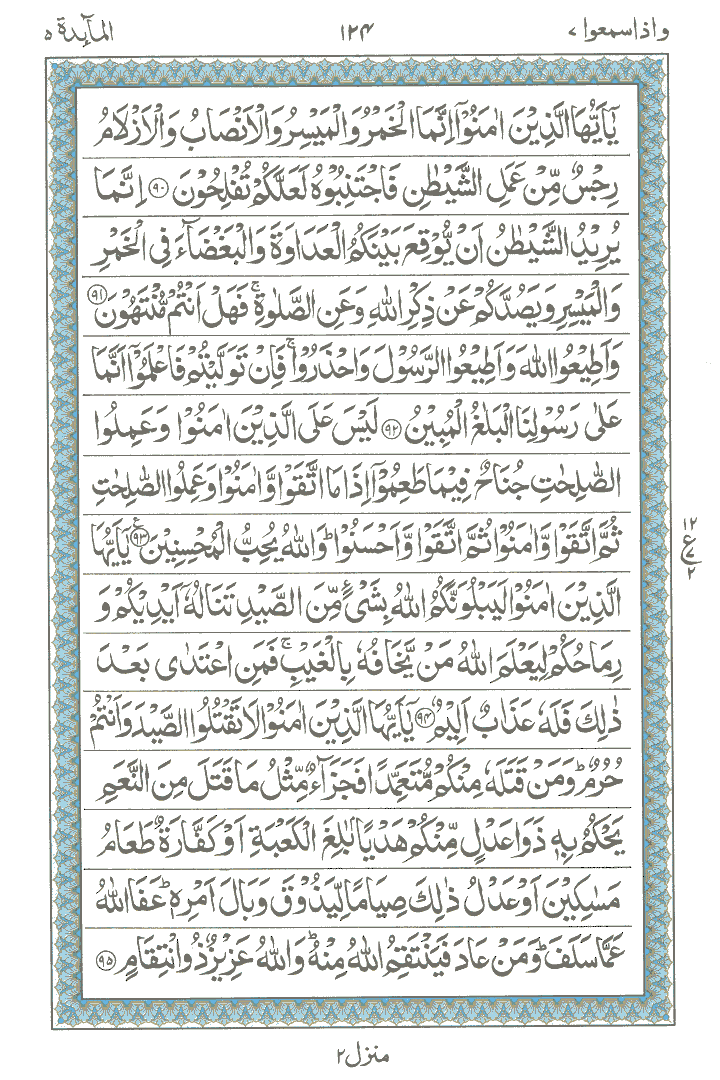 واذاسمعوا ٧ ١٢٤ المآئدة ٥
يٰۤاَيُّهَا الَّذِيْنَ اٰمَنُوْۤا اِنَّمَا الْخَمْرُ وَالْمَيْسِرُ وَالْاَنْصَابُ وَالْاَزْلَامُ
رِجْسٌ مِّنْ عَمَلِ الشَّيْطٰنِ فَاجْتَنِبُوْهُ لَعَلَّكُمْ تُفْلِحُوْنَ ٩٠ اِنَّمَا
يُرِيْدُ الشَّيْطٰنُ اَنْ يُّوْقِعَ بَيْنَكُمُ الْعَدَاوَةَ وَالْبَغْضَآءَ فِى الْخَمْرِ
وَالْمَيْسِرِ وَيَصُدَّكُمْ عَنْ ذِكْرِ اللّٰهِ وَعَنِ الصَّلٰوةِ ۚ فَهَلْ اَنْتُمْ مُّنْتَهُوْنَ ٩١
وَاَطِيْعُوا اللّٰهَ وَاَطِيْعُوا الرَّسُوْلَ وَاحْذَرُوْا ۚ فَاِنْ تَوَلَّيْتُمْ فَاعْلَمُوْۤا اَنَّمَا
عَلٰى رَسُوْلِنَا الْبَلٰغُ الْمُبِيْنُ ٩٢ لَيْسَ عَلَى الَّذِيْنَ اٰمَنُوْا وَعَمِلُوا
الصّٰلِحٰتِ جُنَاحٌ فِيْمَا طَعِمُوْۤا اِذَا مَا اتَّقَوْا وَّاٰمَنُوْا وَعَمِلُوا الصّٰلِحٰتِ
ثُمَّ اتَّقَوْا وَّاٰمَنُوْا ثُمَّ اتَّقَوْا وَّاَحْسَنُوْا ؕ وَاللّٰهُ يُحِبُّ الْمُحْسِنِيْنَ ٩٣ ع يٰۤاَيُّهَا
١٢
ع ٧
٢
الَّذِيْنَ اٰمَنُوْا لَيَبْلُوَنَّكُمُ اللّٰهُ بِشَىْءٍ مِّنَ الصَّيْدِ تَنَالُهٗۤ اَيْدِيْكُمْ وَ
رِمَاحُكُمْ لِيَعْلَمَ اللّٰهُ مَنْ يَّخَافُهٗ بِالْغَيْبِ ۚ فَمَنِ اعْتَدٰى بَعْدَ
ذٰلِكَ فَلَهٗ عَذَابٌ اَلِيْمٌ ٩٤ يٰۤاَيُّهَا الَّذِيْنَ اٰمَنُوْا لَا تَقْتُلُوا الصَّيْدَ وَاَنْتُمْ
حُرُمٌ ؕ وَمَنْ قَتَلَهٗ مِنْكُمْ مُّتَعَمِّدًا فَجَزَآءٌ مِّثْلُ مَا قَتَلَ مِنَ النَّعَمِ
يَحْكُمُ بِهٖ ذَوَا عَدْلٍ مِّنْكُمْ هَدْيًا بٰلِغَ الْكَعْبَةِ اَوْ كَفَّارَةٌ طَعَامُ
مَسٰكِيْنَ اَوْ عَدْلُ ذٰلِكَ صِيَامًا لِّيَذُوْقَ وَبَالَ اَمْرِهٖ ؕ عَفَا اللّٰهُ
عَمَّا سَلَفَ ؕ وَمَنْ عَادَ فَيَنْتَقِمُ اللّٰهُ مِنْهُ ؕ وَاللّٰهُ عَزِيْزٌ ذُوانْتِقَامٍ ٩٥
منزل ٢